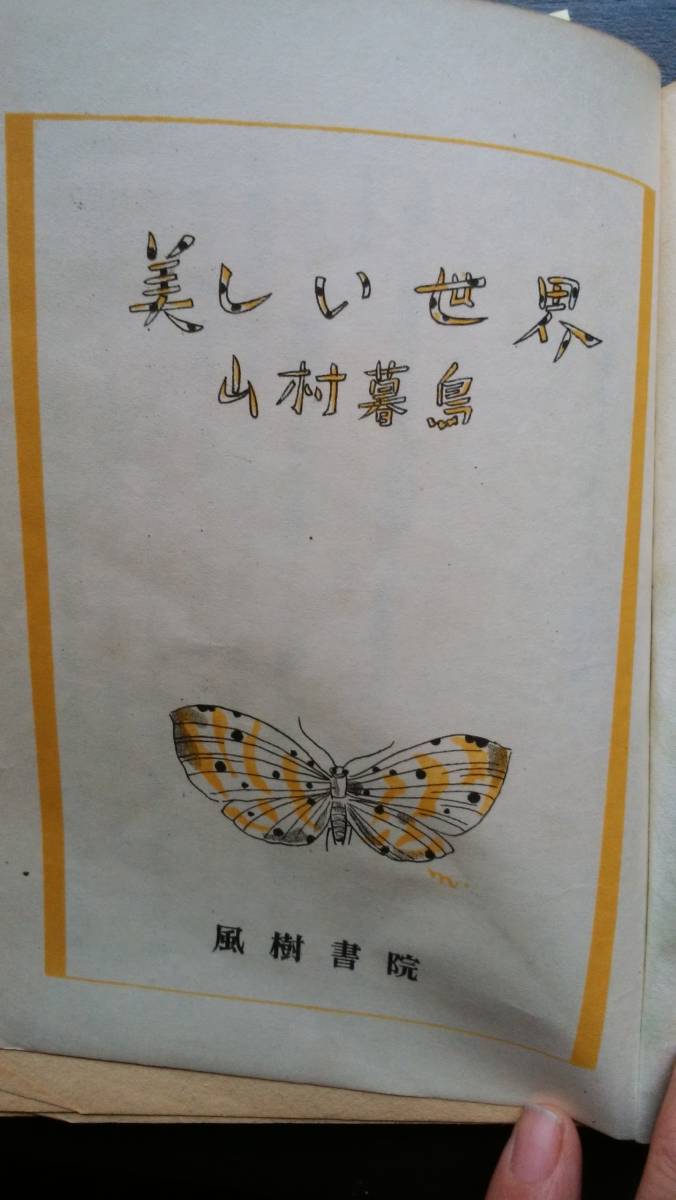 美しい世界
山村暮鳥
m
風樹書院